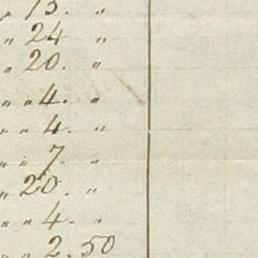 „ 13. „
„ 24 „
„ 20. „
„ „ 4. „
„ „ 4. „
„ „ 7. „
„ 20. „
„ „ 4. „
„ „ 2.50